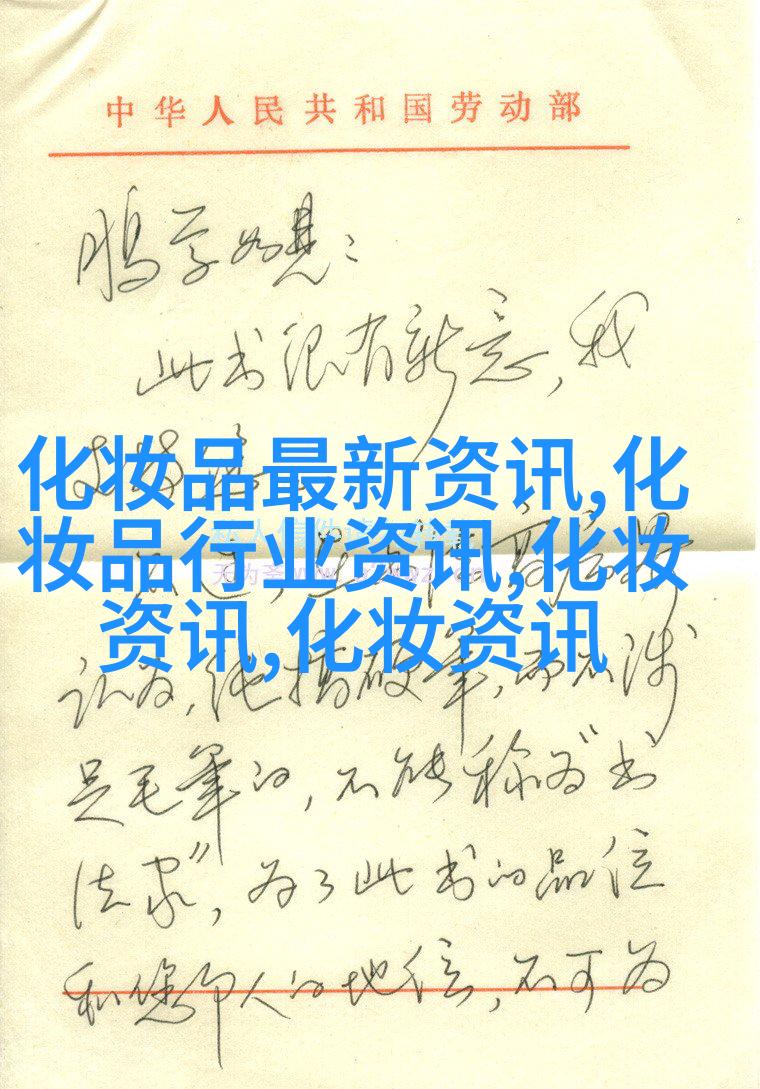 中华人民共和国劳动部
鹏学如晤：
此书很有新意，我
支持
化妆品最新资讯,化
妆品行业资讯,化妆
资讯,化妆资讯
认为，纯搞硬笔，而不涉
足毛笔的，不能称为“书
法家”，为了此书的品位
和您个人的地位，不可为